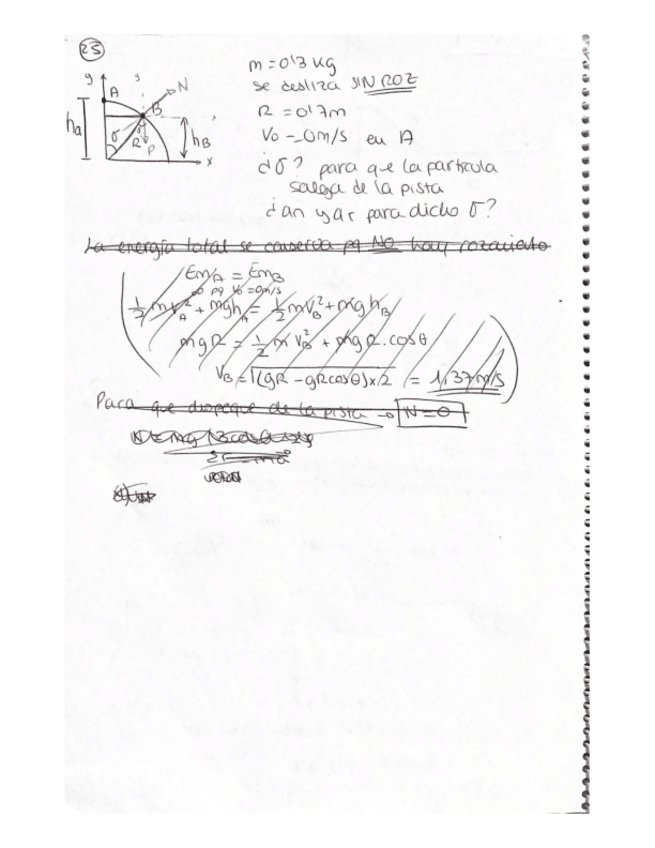 23
m = 0'3 kg
se desliza SIN ROZ
R = 0'7m
V0 - 0m/s en A
¿σ? para que la partícula
salga de la pista
¿an y ar para dicho σ?
y
y
A
N
B
ha
σ
R
P
hB
x
La energía total se conserva pq NO hay rozamiento
EmA = EmB
0 pq V0 = 0m/s
1/2 mVA² + mghA = 1/2 mVB² + mghB
mgR = 1/2 m VB² + mgR.cosθ
VB = √(gR - gRcosθ)x2 = 1,37m/s
Para que despegue de la pista → N = 0